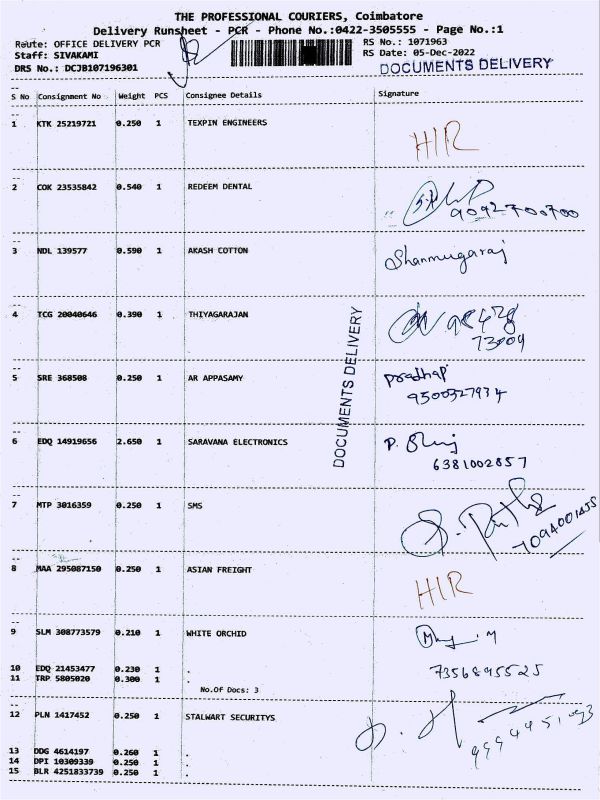 THE PROFESSIONAL COURIERS, Coimbatore
Delivery Runsheet - PCR - Phone No.:0422-3505555 - Page No.:1
Route: OFFICE DELIVERY PCR RS No.: 1071963
Staff: SIVAKAMI RS Date: 05-Dec-2022
DRS No.: DCJB107196301 DOCUMENTS DELIVERY
S No Consignment No Weight PCS Consignee Details Signature
1 KTK 25219721 0.250 1 TEXPIN ENGINEERS
HIR
2 COK 23535842 0.540 1 REDEEM DENTAL
9092700700
3 NDL 139577 0.590 1 AKASH COTTON
Shanmugaraj
4 TCG 20040646 0.390 1 THIYAGARAJAN
73009
DOCUMENTS DELIVERY
5 SRE 368508 0.250 1 AR APPASAMY
pradhap
9500327934
6 EDQ 14919656 2.650 1 SARAVANA ELECTRONICS
P.
6381002857
7 MTP 3016359 0.250 1 SMS
8 MAA 295087150 0.250 1 ASIAN FREIGHT
HIR
9 SLM 308773579 0.210 1 WHITE ORCHID
10 EDQ 21453477 0.230 1 .
7356895525
11 TRP 5805020 0.300 1 .
No.Of Docs: 3
12 PLN 1417452 0.250 1 STALWART SECURITYS
13 DDG 4614197 0.260 1 .
14 DPI 10309339 0.250 1 .
15 BLR 4251833739 0.250 1 .